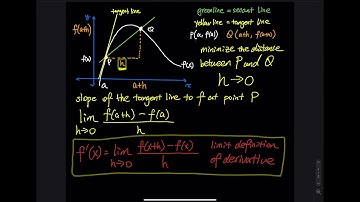 tangent line
greenline = secant line
yellow line = tangent line
P(a, f(a)) Q (a+h, f(a+h))
minimize the distance
between P and Q
h→0
y
f(a+h)
f(a)
P
Q
h
a
a+h
x
slope of the tangent line to f at point P
lim h→0 f(a+h) - f(a) / h
f'(x) = lim h→0 f(x+h) - f(x) / h limit definition
of derivative